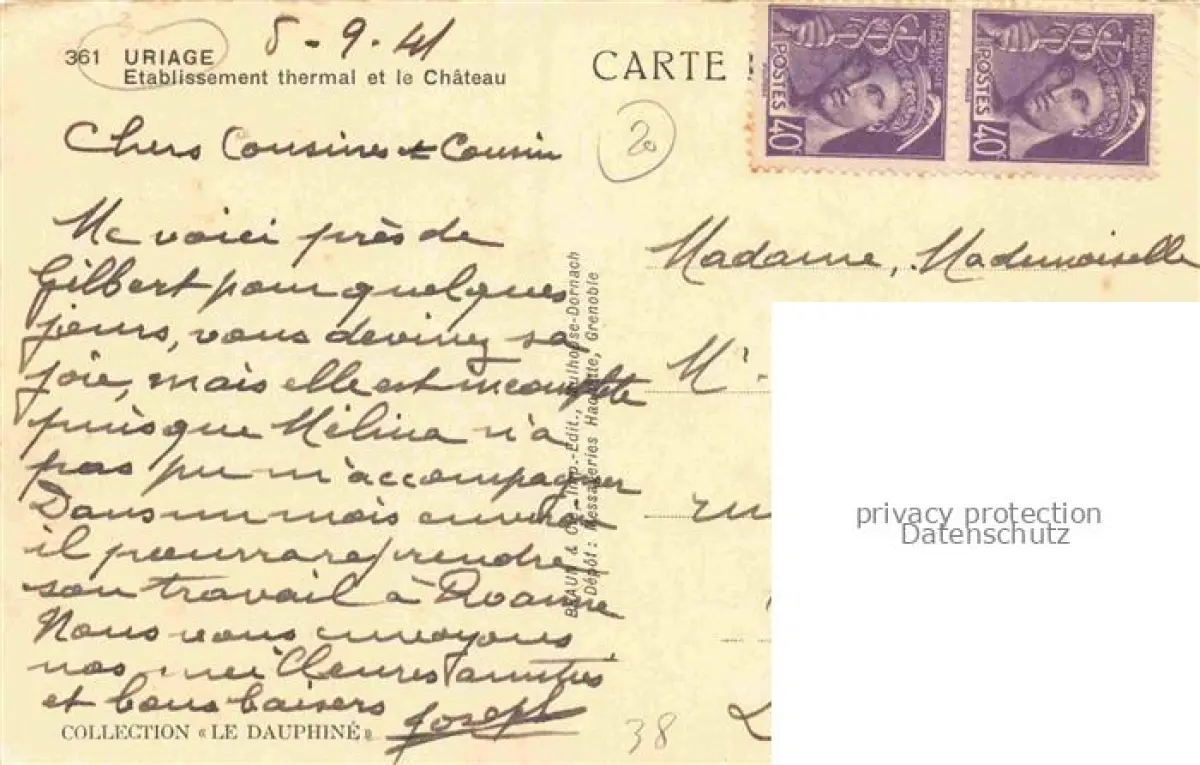 5-9-41
361 URIAGE
Etablissement thermal et le Château
CARTE
REPUBLIQUE FRANÇAISE
POSTES
40c
POSTES
40c
20
Chers Cousines et Cousin
Me voici près de
Gilbert pour quelques
jours, vous devinez sa
joie, mais elle est incomplète
puisque Mélina n'a
pas pu m'accompagner
Dans un mois environ
il pourra reprendre
son travail à Roanne
Nous vous envoyons
nos meilleures amitiés
et bons baisers
Joseph
COLLECTION « LE DAUPHINÉ »
BRAUN & Cie, Imp.-Edit., Mulhouse-Dornach
Dépôt : Messageries Hachette, Grenoble
Madame, Mademoiselle
Mr.
38
privacy protection
Datenschutz